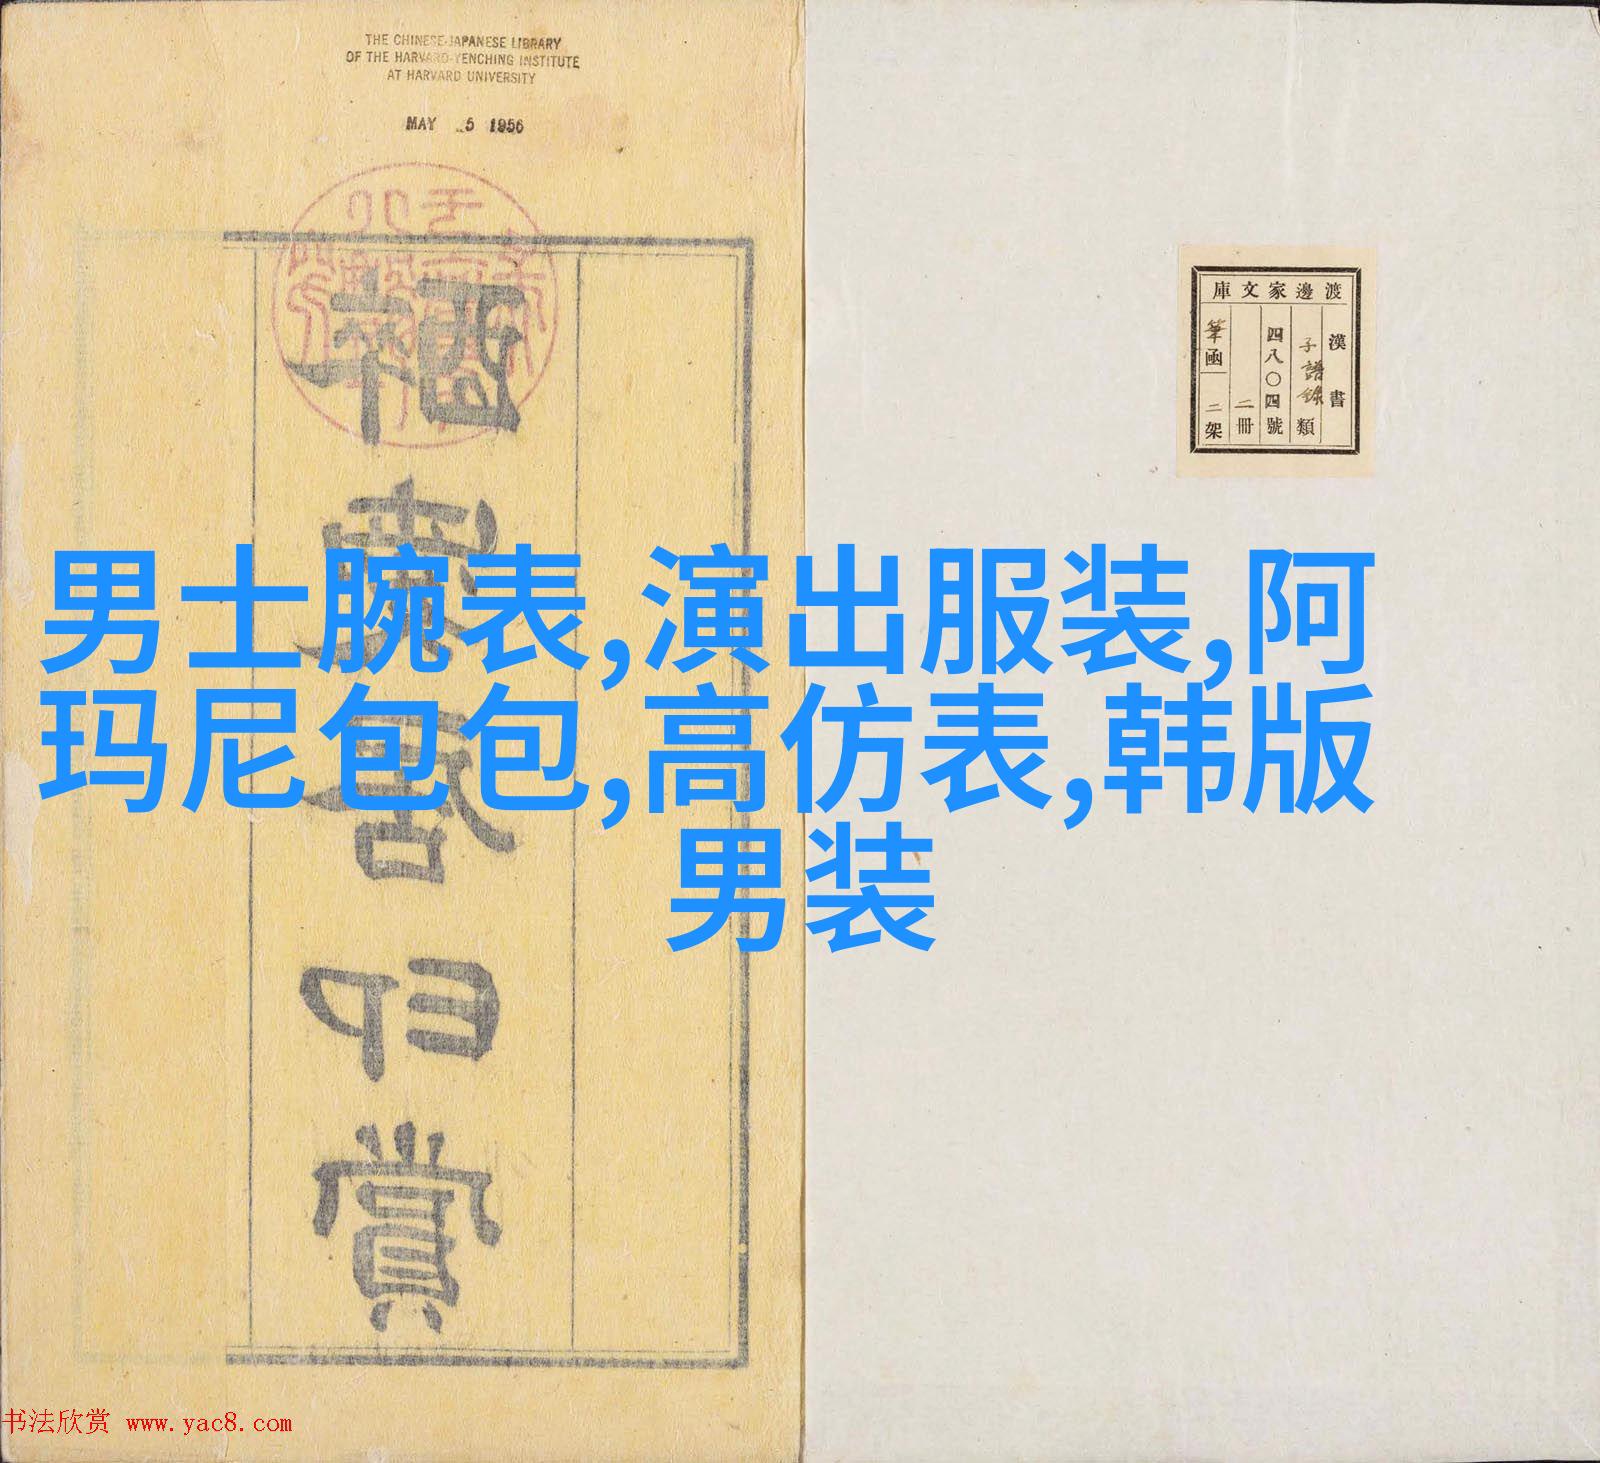 THE CHINESE-JAPANESE LIBRARY
OF THE HARVARD-YENCHING INSTITUTE
AT HARVARD UNIVERSITY
MAY 25 1956
渡邊家文庫
漢書
子語錄類
四八〇四號
二冊
筆函二架
男士腕表,演出服装,阿
玛尼包包,高仿表,韩版
男装
賞
书法欣赏 www.yac8.com